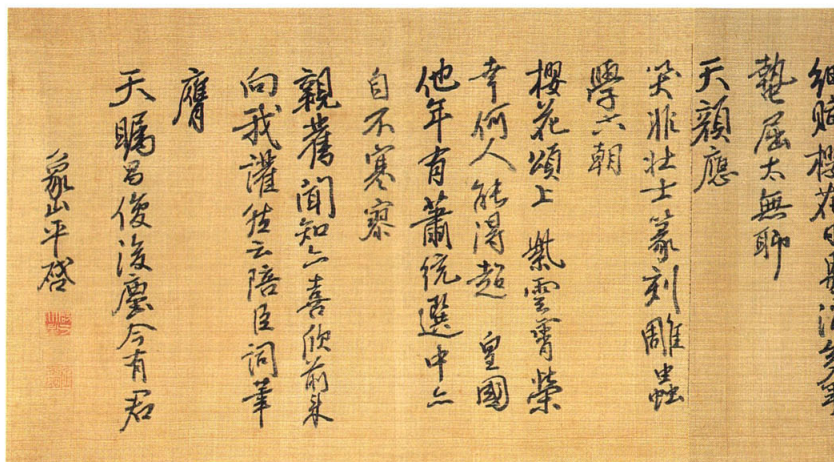 蟄屈太無聊
天顔應
笑非壯士篆刻雕蟲
學六朝
櫻花頌上 紫雲霄榮
幸何人能得超 皇國
他年有蕭統選中亦
自不寥寥
親舊聞知亦喜欣前來
向我讙然云陪臣詞筆
膺
天矚昌俊後塵今有君
象山平啓